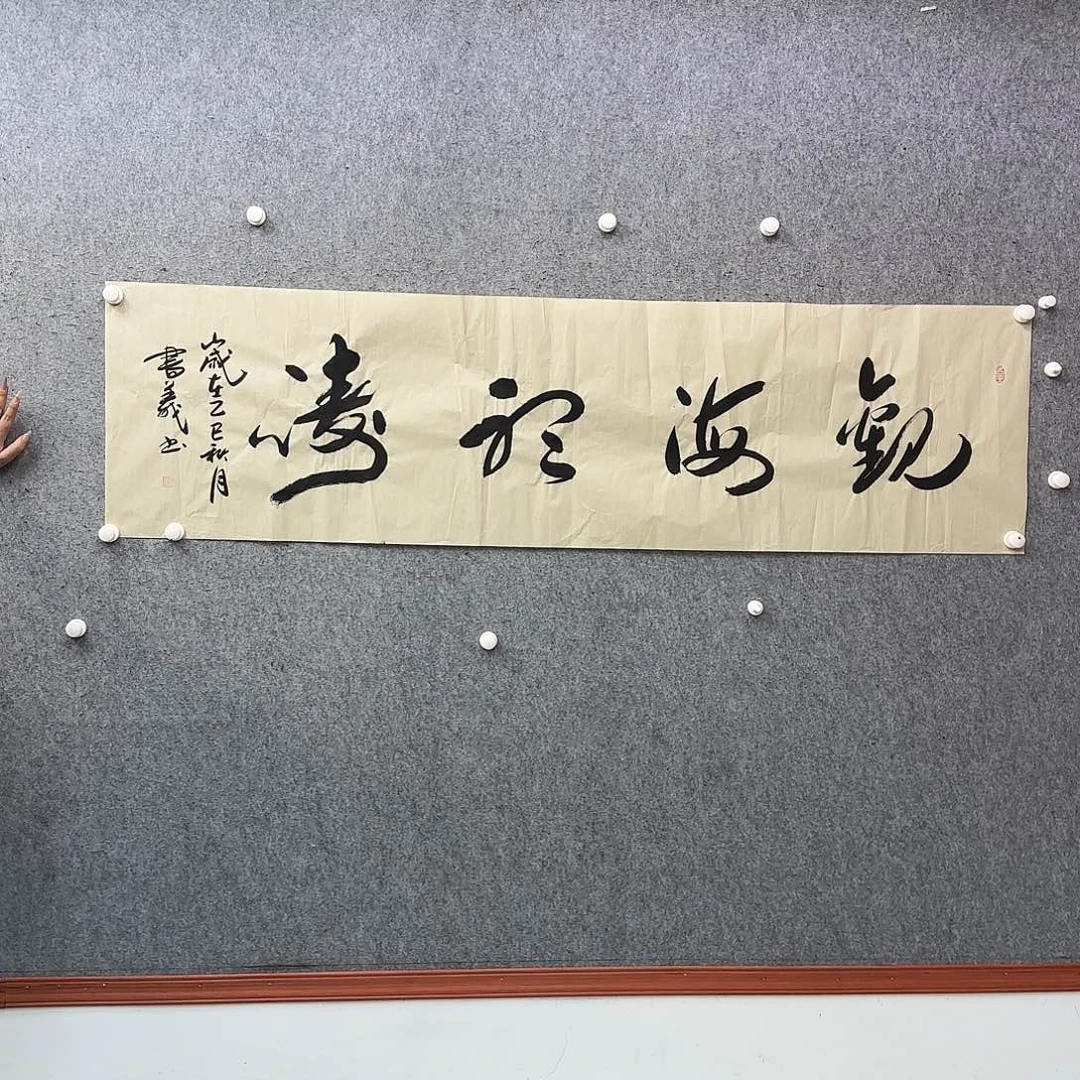 觀海聽濤
歲在乙巳秋月
書義书